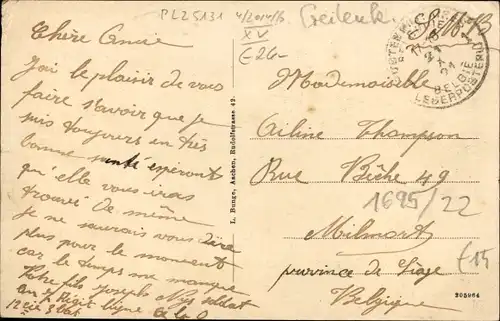 PL25131 4/2014/6
XV
€26-
S.M.
BELGIE
LEGERPOSTERIJ
Chère Amie
Jai le plaisir de vous
faire savoir que je
suis toujours en très
bonne santé espéront
qu'elle vous iras
trouvé de même
je ne saurais vous dire
plus pour le moment
car le temps me manque
Votre fils Joseph soldat
au Régit ligne
12 cie 3 Bat
L. Bunge, Aachen, Rudolfstrasse 42.
Mademoiselle
Thompson
Rue Bêche 49
1695/22
Milmort
province de Liége
€15
Belgique